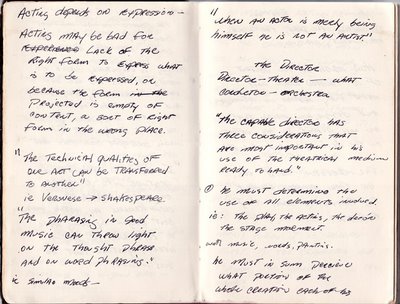 Acting depends on expression—
Acting may be bad for
Experienced Lack of the
right form to express what
is to be expressed, or
because the form
projected is empty of
content, a sort of right
form in the wrong place.
"The technical qualities of
one art can be transferred
to another"
ie → Shakespeare.
"The phrasing in good
music can throw light
on the thought phrase
and on word phrasing."
ie similar moods—
"When an actor is merely being
himself he is not an artist"
The Director
Director—theatre—what
conductor—orchestra
"The capable director has
three considerations that
are most important in his
use of the theatrical medium
ready to hand."
① he must determine the
use of all elements involved
ie: the play, the acting, the decor
the stage movement.
with music, words, painting.
he must in sum perceive
what portion of the
whole creation each of his